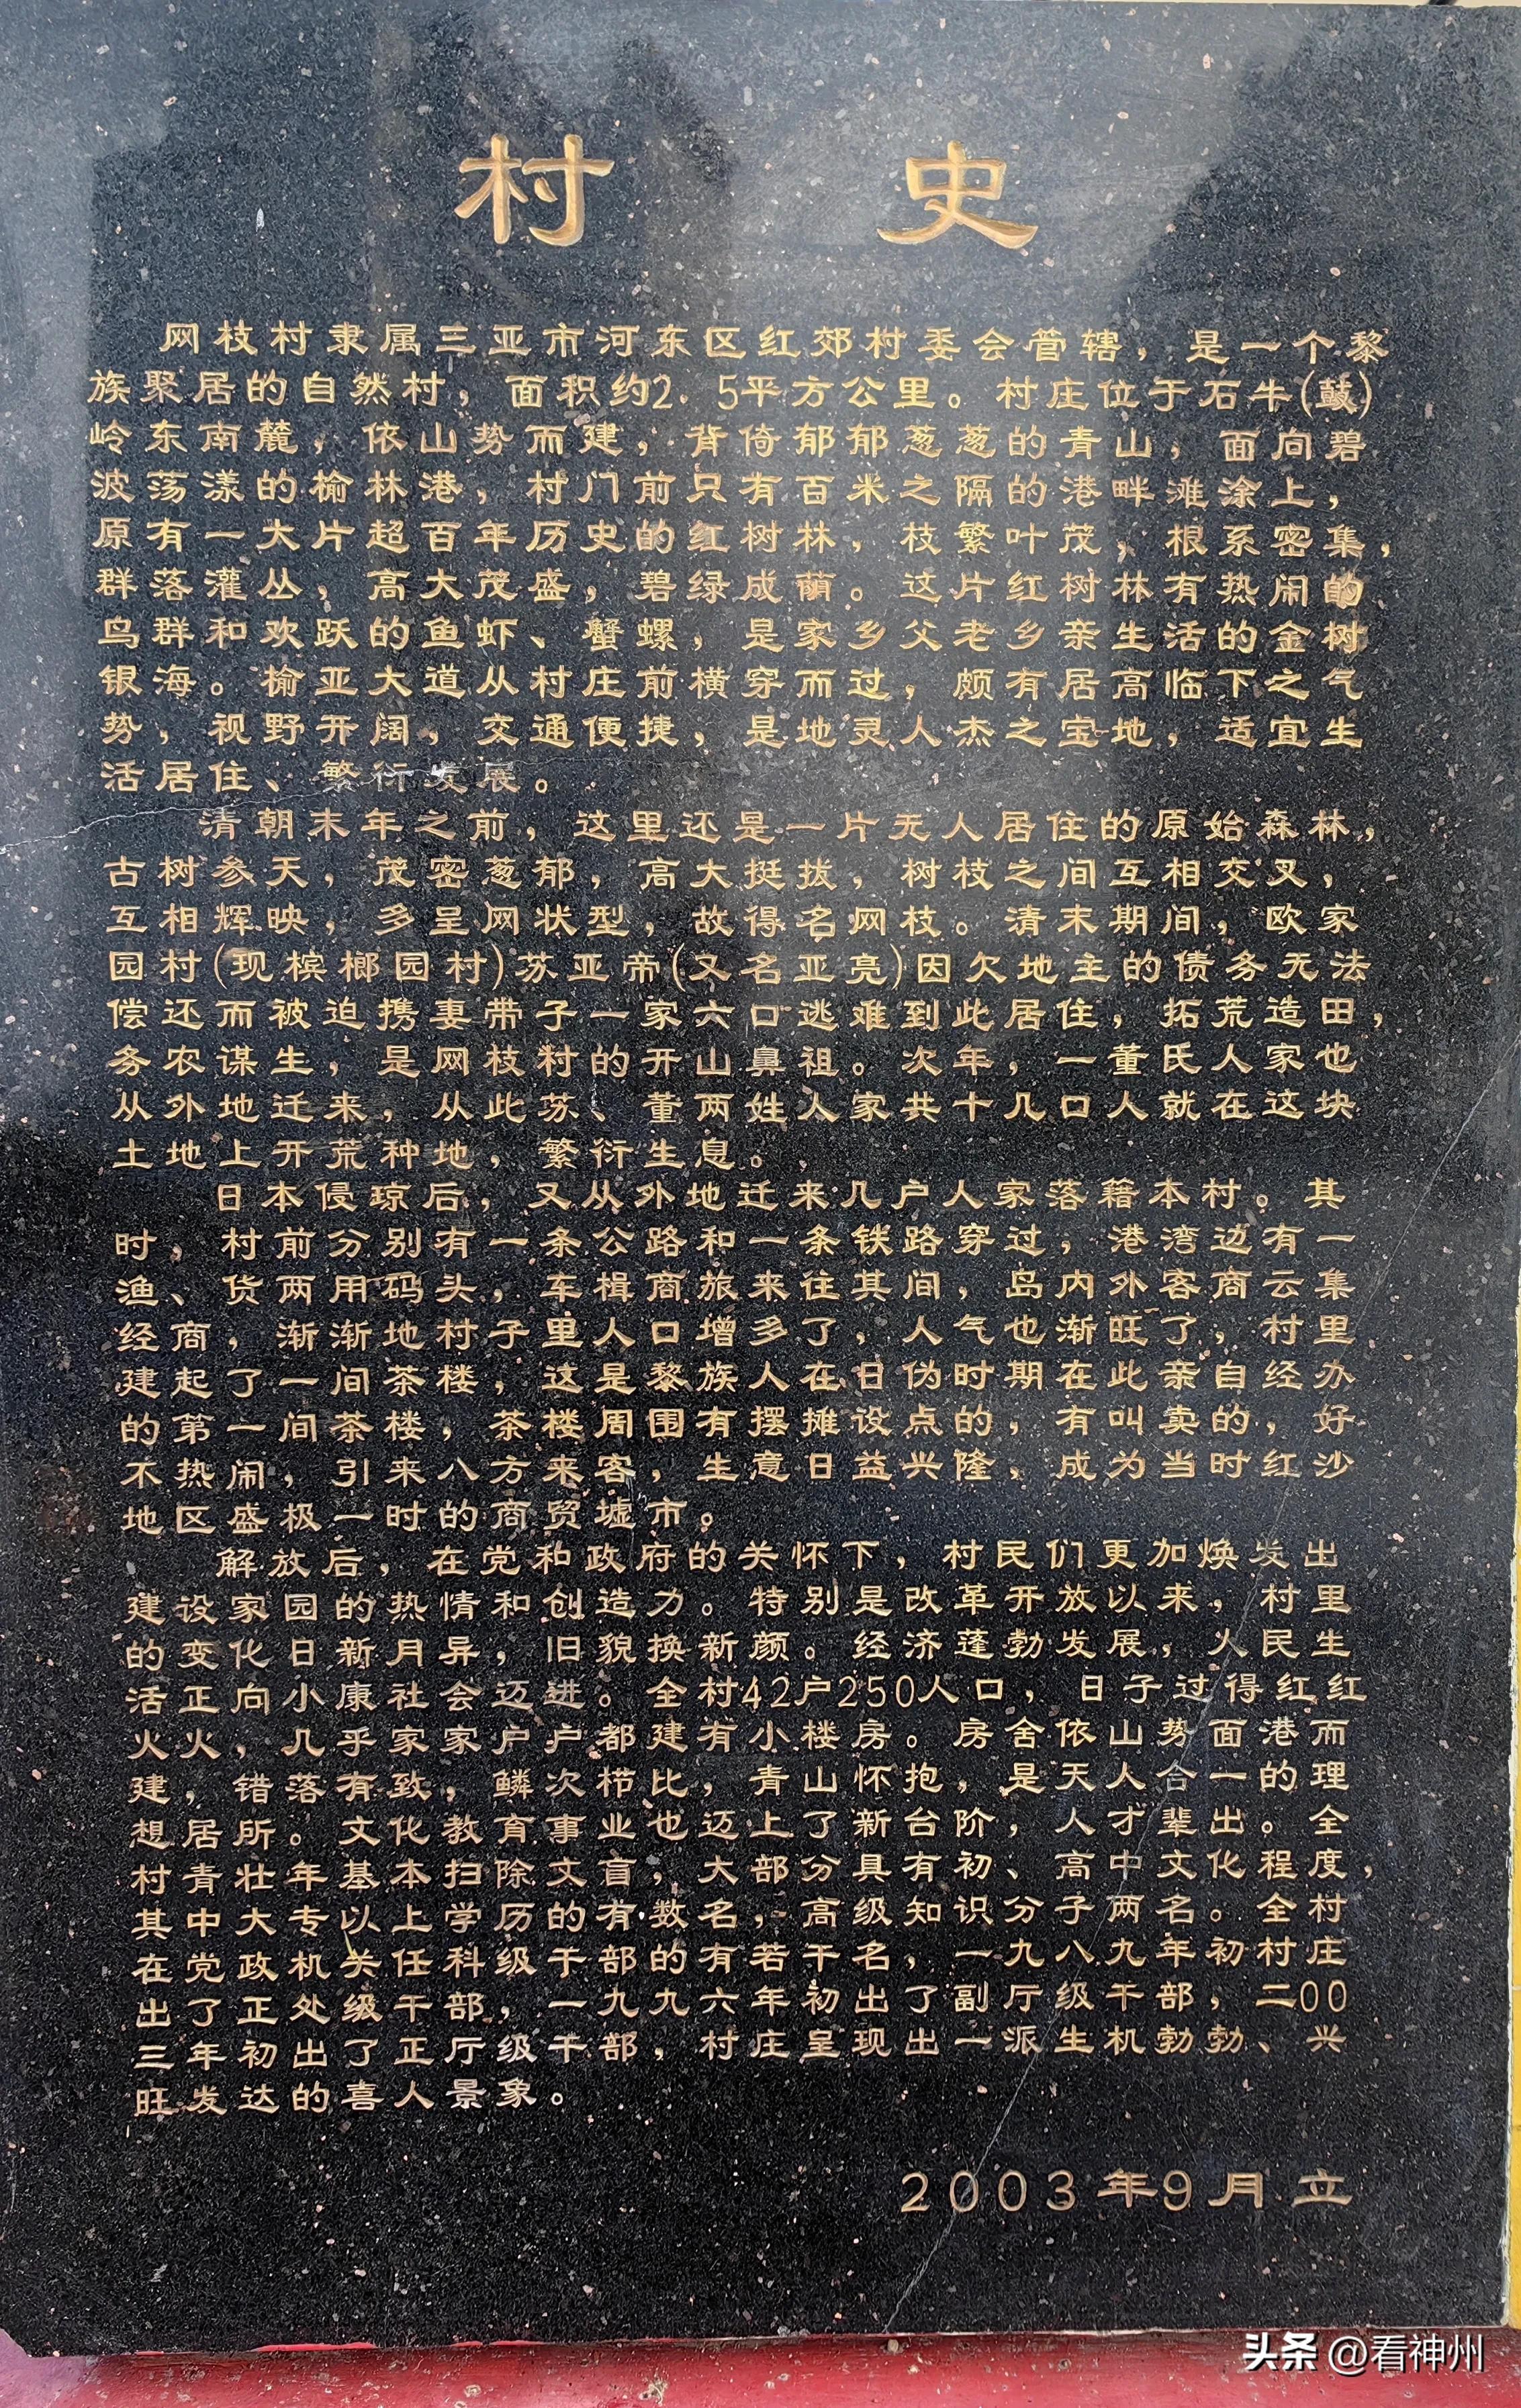 村 史
网枝村隶属三亚市河东区红郊村委会管辖，是一个黎
族聚居的自然村，面积约2.5平方公里。村庄位于石牛(鼓)
岭东南麓，依山势而建，背倚郁郁葱葱的青山，面向碧
波荡漾的榆林港，村门前只有百米之隔的港畔滩涂上，
原有一大片超百年历史的红树林，枝繁叶茂，根系密集，
群落灌丛，高大茂盛，碧绿成荫。这片红树林有热闹的
鸟群和欢跃的鱼虾、蟹螺，是家乡父老乡亲生活的金树
银海。榆亚大道从村庄前横穿而过，颇有居高临下之气
势，视野开阔，交通便捷，是地灵人杰之宝地，适宜生
活居住、繁衍发展。
清朝末年之前，这里还是一片无人居住的原始森林，
古树参天，茂密葱郁，高大挺拔，树枝之间互相交叉，
互相辉映，多呈网状型，故得名网枝。清末期间，欧家
园村(现槟榔园村)苏亚帝(又名亚亮)因欠地主的债务无法
偿还而被迫携妻带子一家六口逃难到此居住，拓荒造田，
务农谋生，是网枝村的开山鼻祖。次年，一董氏人家也
从外地迁来，从此苏、董两姓人家共十几口人就在这块
土地上开荒种地，繁衍生息。
日本侵琼后，又从外地迁来几户人家落籍本村。其
时，村前分别有一条公路和一条铁路穿过，港湾边有一
渔、货两用码头，车楫商旅来往其间，岛内外客商云集
经商，渐渐地村子里人口增多了，人气也渐旺了，村里
建起了一间茶楼，这是黎族人在日伪时期在此亲自经办
的第一间茶楼，茶楼周围有摆摊设点的，有叫卖的，好
不热闹，引来八方来客，生意日益兴隆，成为当时红沙
地区盛极一时的商贸墟市。
解放后，在党和政府的关怀下，村民们更加焕发出
建设家园的热情和创造力。特别是改革开放以来，村里
的变化日新月异，旧貌换新颜。经济蓬勃发展，人民生
活正向小康社会迈进。全村42户250人口，日子过得红红
火火，几乎家家户户都建有小楼房。房舍依山势面港而
建，错落有致，鳞次栉比，青山怀抱，是天人合一的理
想居所。文化教育事业也迈上了新台阶，人才辈出。全
村青壮年基本扫除文盲，大部分具有初、高中文化程度，
其中大专以上学历的有数名，高级知识分子两名。全村
在党政机关任科级干部的有若干名，一九八九年初村庄
出了正处级干部，一九九六年初出了副厅级干部，二00
三年初出了正厅级干部，村庄呈现出一派生机勃勃、兴
旺发达的喜人景象。
2003年9月立
头条 @看神州